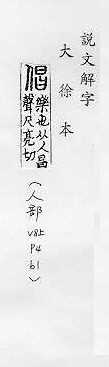 說文解字
大徐本
倡樂也从人昌
聲尺亮切
(人部 V8上 P4 b1)